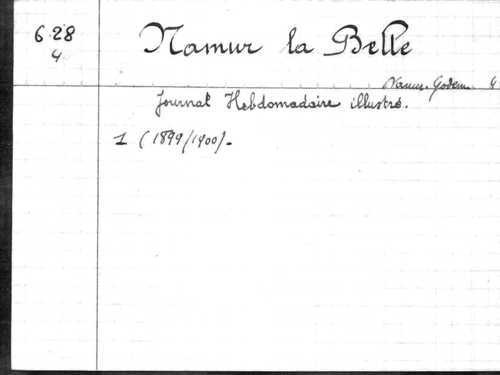 628 Namur la Belle
4
Namur. Godenne
Journal Hebdomadaire illustré.
1 (1899/1900)-